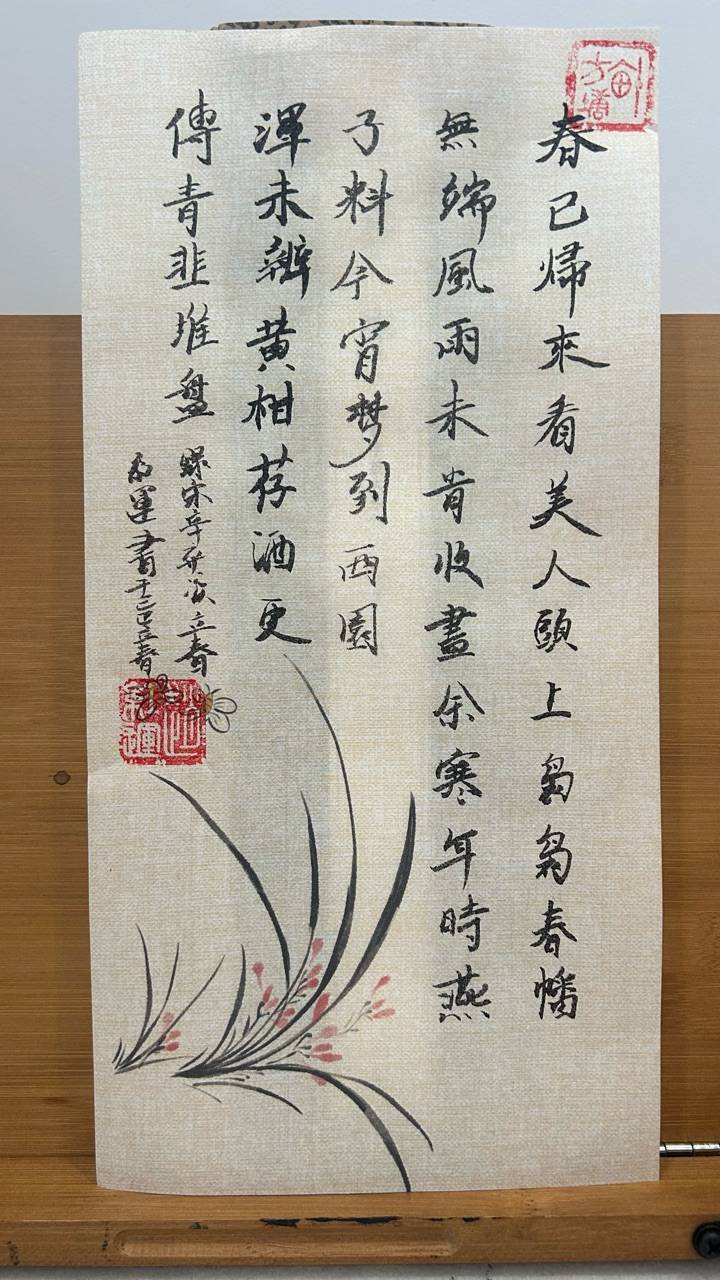 春已歸來看美人頭上裊裊春幡
無端風雨未肯收盡余寒年時燕
子料今宵梦到西園
渾未辦黄柑荐酒更
傳青韭堆盘
錄宋辛弃疾立春